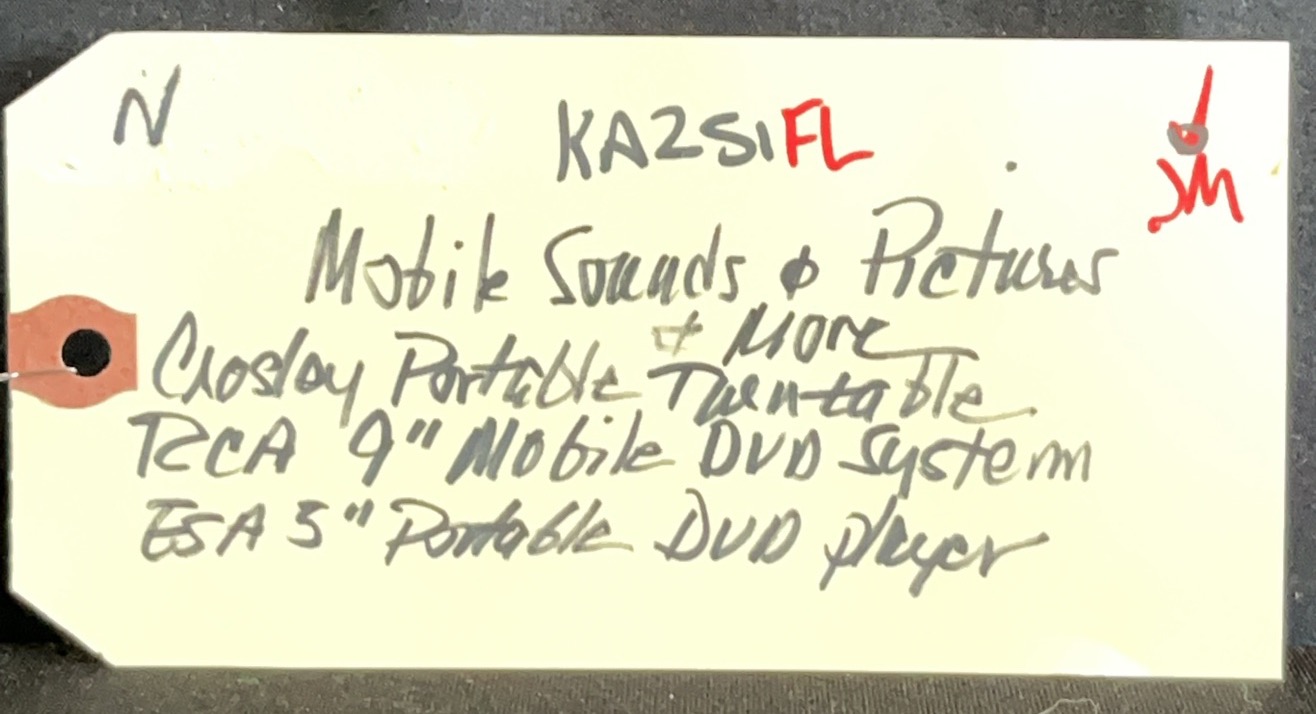 N
KA251FL
JM
Mobile Sounds & Pictures
& More
Crosley Portable Turntable
RCA 9" Mobile DVD System
ESA 5" Portable DVD player